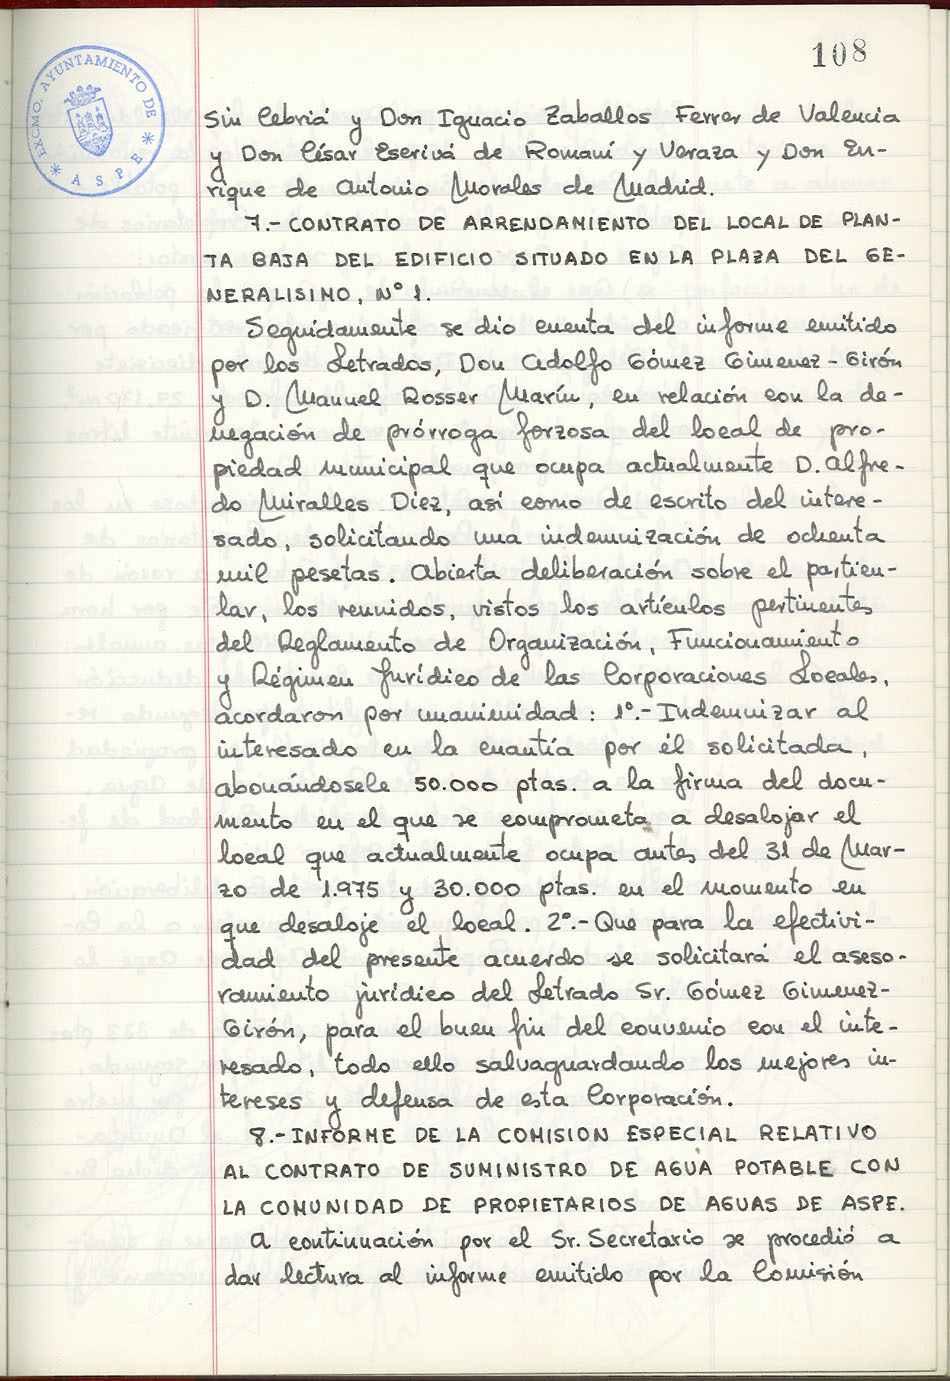 108
EXCMO. AYUNTAMIENTO DE
* ASPE *
Sin Cebriá y Don Ignacio Zaballos Ferrer de Valencia
y Don César Escrivá de Romaní y Veraza y Don En-
rique de Antonio Morales de Madrid.
7.- CONTRATO DE ARRENDAMIENTO DEL LOCAL DE PLAN-
TA BAJA DEL EDIFICIO SITUADO EN LA PLAZA DEL GE-
NERALISIMO, Nº 1.
Seguidamente se dio cuenta del informe emitido
por los Letrados, Don Adolfo Gómez Gimenez-Girón
y D. Manuel Rosser Marín, en relación con la de-
negación de prórroga forzosa del local de pro-
piedad municipal que ocupa actualmente D. Alfre-
do Miralles Diez, así como de escrito del intere-
sado, solicitando una indemnización de ochenta
mil pesetas. Abierta deliberación sobre el particu-
lar, los reunidos, vistos los artículos pertinentes
del Reglamento de Organización, Funcionamiento
y Régimen Jurídico de las Corporaciones Locales,
acordaron por unanimidad: 1º.- Indemnizar al
interesado en la cuantía por él solicitada,
abonándosele 50.000 ptas. a la firma del docu-
mento en el que se comprometa a desalojar el
local que actualmente ocupa antes del 31 de Mar-
zo de 1.975 y 30.000 ptas. en el momento en
que desaloje el local. 2º.- Que para la efectivi-
dad del presente acuerdo se solicitará el aseso-
ramiento jurídico del Letrado Sr. Gómez Gimenez-
Girón, para el buen fin del convenio con el inte-
resado, todo ello salvaguardando los mejores in-
tereses y defensa de esta Corporación.
8.- INFORME DE LA COMISION ESPECIAL RELATIVO
AL CONTRATO DE SUMINISTRO DE AGUA POTABLE CON
LA COMUNIDAD DE PROPIETARIOS DE AGUAS DE ASPE.
A continuación por el Sr. Secretario se procedió a
dar lectura al informe emitido por la Comisión